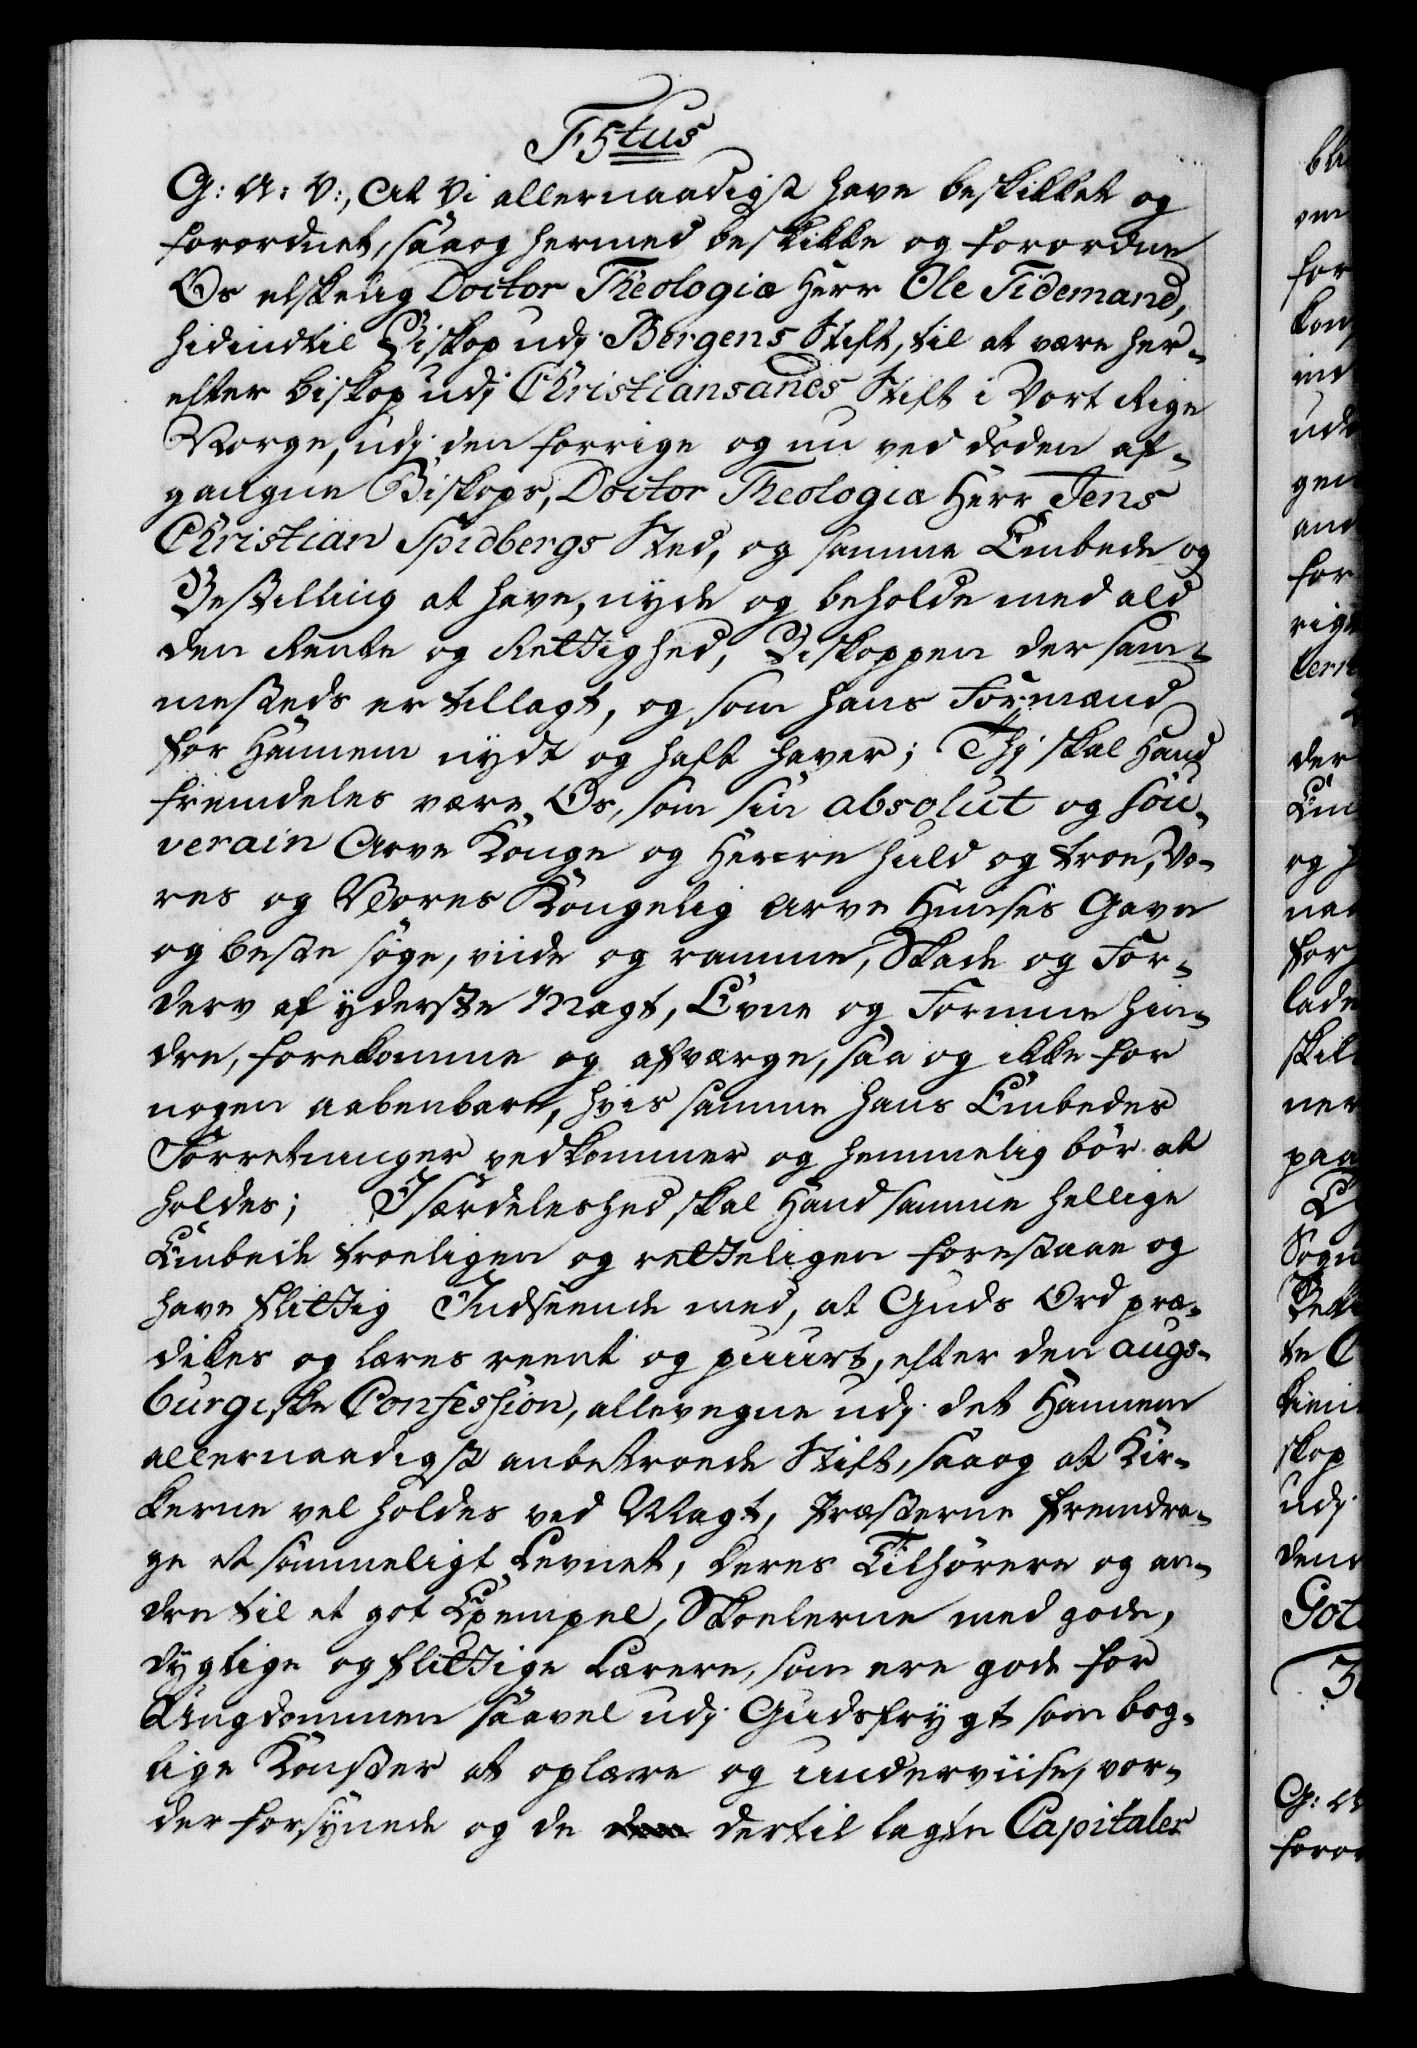 F5tus
G: A: V:, At Vi allernaadigst have beskikket og
forordnet, saa og hermed beskikke og forordne
Os elskelig Doctor Theologiæ Herr Ole Tidemand,
hidindtil Biskop udj Bergens Stift, til at være her-
efter Biskop udj Christiansands Stift i Vort Rige
Norge, udj den forrige og nu ved døden af-
gangne Biskops, Doctor Theologiæ Herr Jens
Christian Spidbergs Sted, og samme Embede og
Bestilling at have, nyde og beholde med ald
den Rente og Rettighed, Biskoppen der sam-
mesteds er tillagt, og som hans Formænd
for Hannem nydt og haft haver; Thj skal Hand
fremdeles være Os, som sin absolut og sou-
verain Arve Konge og Herre huld og troe, Vo-
res og Vores Kongelig Arve Huuses Gavn
og beste søge, viide og ramme, Skade og For-
derv af yderste Magt, Evne og Formue hin-
dre, forekomme og afværge, saa og ikke for
nogen aabenbare, hvis samme hans Embedes
Forretninger vedkommer og hemmelig bør at
holdes; Isærdeleshed skal Hand samme hellige
Embede troeligen og retteligen forestaae og
have flittig Indseende med, at Guds Ord præ-
dikes og læres reent og puurt, efter den augs-
burgiske Confession, allevegne udj det Hannem
allernaadigst anbetroede Stift, saa og at Kir-
kerne vel holdes ved Magt, Præsterne fremdra-
ge et sømmeligt Levnet, deres Tilhørere og an-
dre til et got Exempel, Skoelerne med gode,
dygtige og flittige Lærere, som ere gode for
Ungdommen saavel udj Gudsfrygt som bog-
lige Konster at oplære og underviise, vor-
der forsynede og de dertil lagte Capitaler